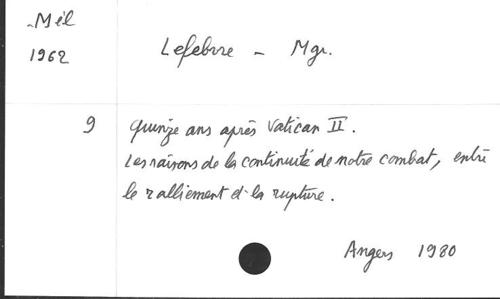 Mél
1962
Lefebvre - Mgr.
9
Quinze ans après Vatican II.
Les raisons de la continuité de notre combat, entre
le ralliement et la rupture.
Angers 1980